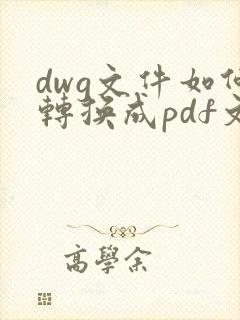 dwg文件如何
轉換成pdf文
高學余